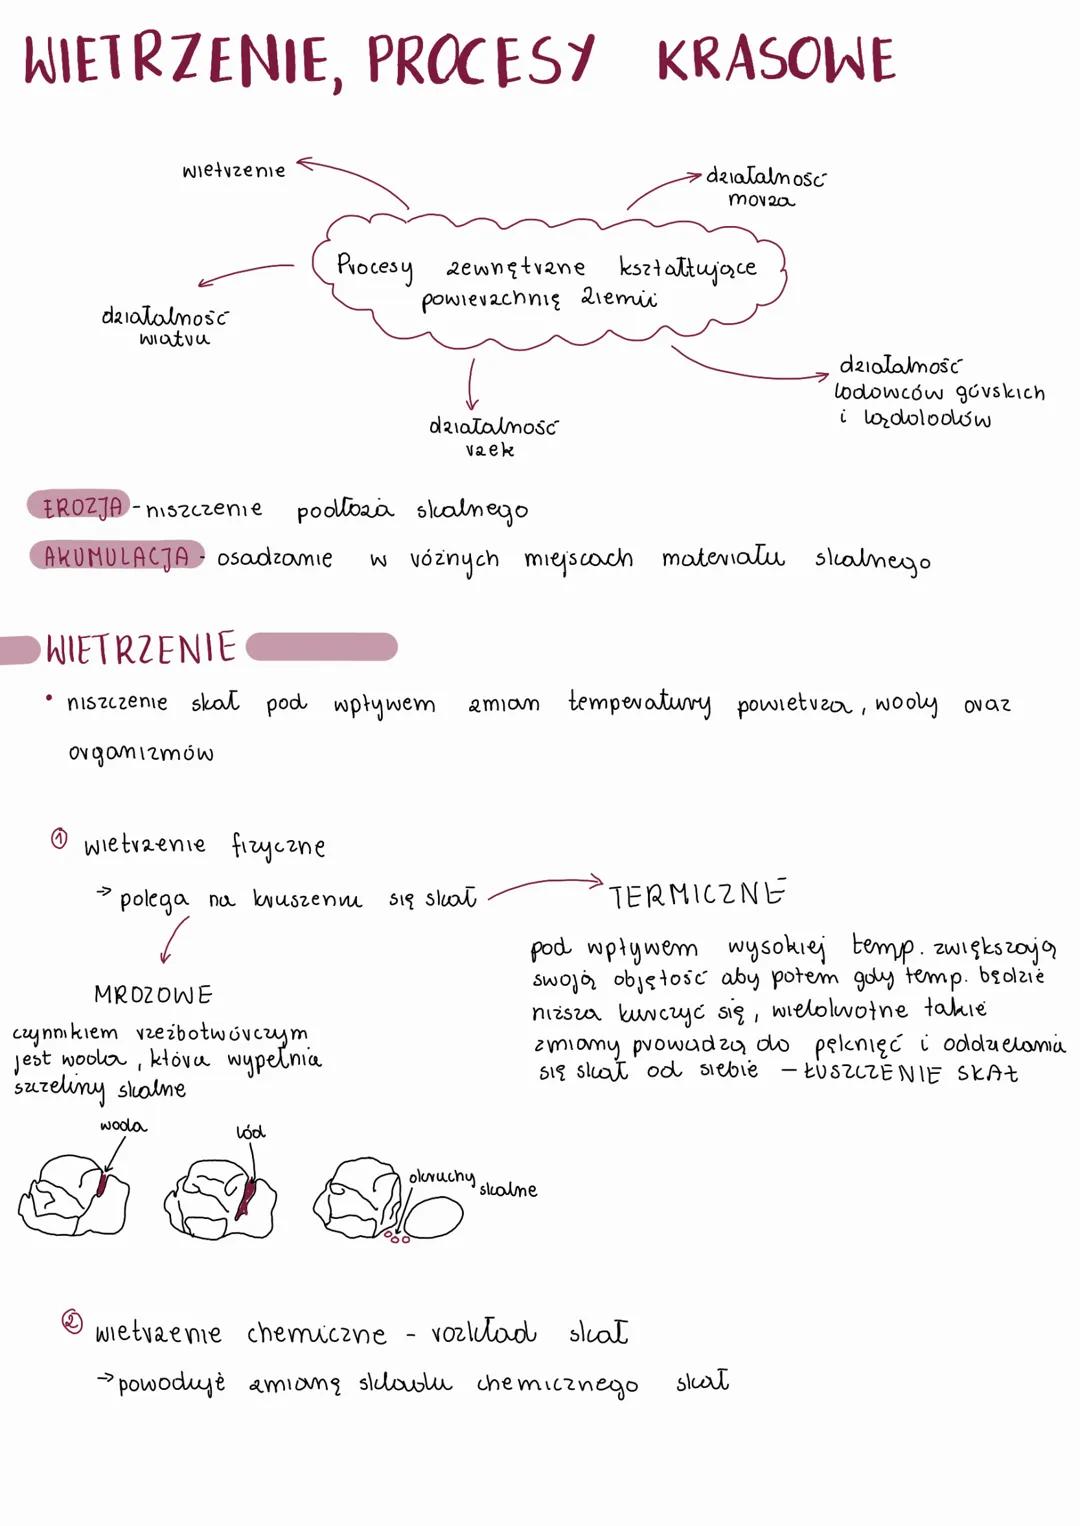 WIETRZENIE, PROCESY KRASOWE
wietrzenie
działalność
morza
Procesy zewnętrzne kształtujące
powierzchnię Ziemii
działalność
wiatru
działalność
rzek
działalność
lodowców górskich
i lądolodów
EROZJA - niszczenie podłoża skalnego
AKUMULACJA - osadzanie w różnych miejscach materiału skalnego
WIETRZENIE
• niszczenie skał pod wpływem zmian temperatury powietrza, wody oraz
organizmów
① wietrzenie fizyczne
→ polega na kruszeniu się skał
TERMICZNE
pod wpływem wysokiej temp. zwiększają
swoją objętość aby potem gdy temp. będzie
niższa kurczyć się, wielokrotne takie
zmiany prowadzą do pęknięć i oddzielania
się skał od siebie - ŁUSZCZENIE SKAŁ
MROZOWE
czynnikiem rzeźbotwórczym
jest woda, która wypełnia
szczeliny skalne
woda
lód
okruchy skalne
② wietrzenie chemiczne - rozkład skał
→ powoduje zmianę składu chemicznego skał